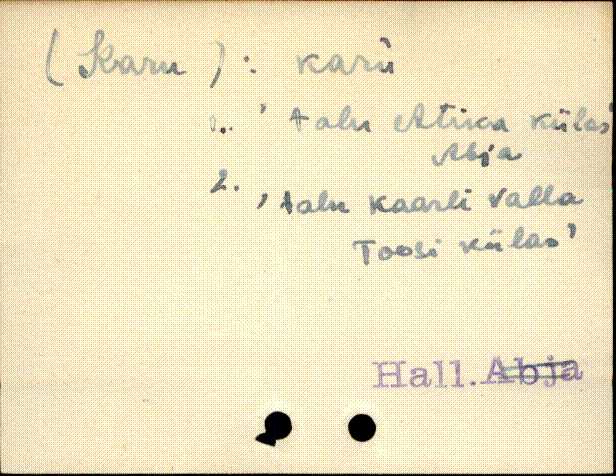 (Karu): karu
1. 'talu Atika külas'
Abja
2. 'talu Kaarli valla
Toosi külas'
Hall. Abja